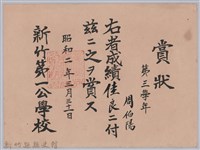 賞狀
第三學年
周伯陽
右者成績佳良ニ付
茲ニ之ヲ賞ス
昭和二年三月二十日
新竹第一公學校